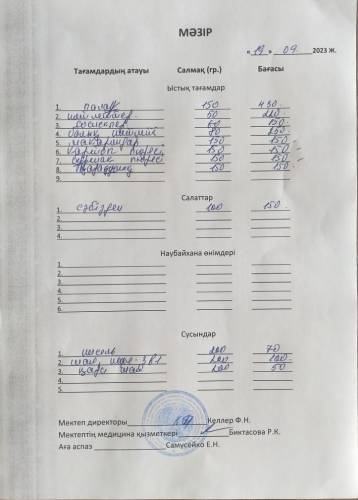 МӘЗІР
« 19 » 09 2023 ж.
Тағамдардың атауы Салмақ (гр.) Бағасы
Ыстық тағамдар
1. палау 150 430-
2. 50
3. сосиски 60 150-
4. 90 250-
5. макарондар 150 150-
6. пюресі 150 150-
7. пюресі 150 150-
8. 150 150-
9.
Салаттар
1. сәбізден 100 150-
2.
3.
4.
Наубайхана өнімдері
1.
2.
3.
4.
5.
6.
Сусындар
1. кисель 200 70
2. шай, 3в1 200 100-
3. шай 200 50
4.
5.
Мектеп директоры Келлер Ф.Н.
Мектептің медицина қызметкері Биктасова Р.К.
Аға аспаз Самусейко Е.Н.